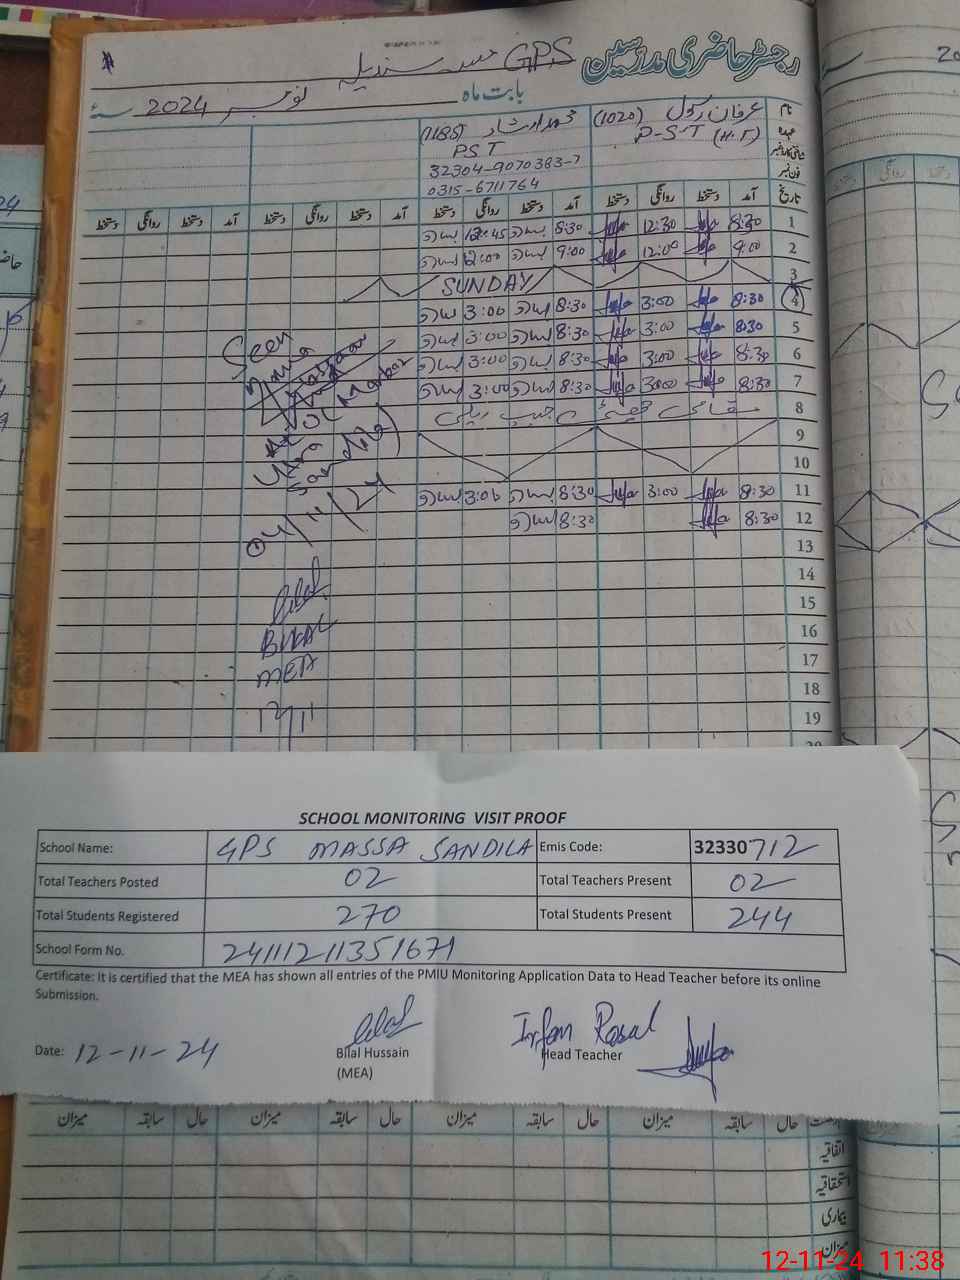 رجسٹر حاضری مدرسین GPS مسہ سندیلہ
بابت ماہ نومبر 2024 سنہ
نام عرفان رسول (1020) محمد ارشاد (1185)
عہدہ P-S-T (H.T) PST
شناختی کارڈ نمبر 32304-9070383-7
فون نمبر 0315-6711764
تاریخ آمد دستخط روانگی دستخط آمد دستخط روانگی دستخط آمد دستخط روانگی دستخط آمد دستخط روانگی دستخط
1 8:30 12:30 8:30 12:45
2 9:00 12:00 9:00 12:00
3 SUNDAY
4 8:30 3:00 8:30 3:00
5 8:30 3:00 8:30 3:00
6 8:30 3:00 8:30 3:00
7 8:30 3:00 8:30 3:00
8 مقامی چھٹی
9
10
11 8:30 3:00 8:30 3:00
12 8:30 8:30
13
14
15
16
17
18
19
20
Seen
04/11/24
Bilal
BILAL
MEA
12/11
SCHOOL MONITORING VISIT PROOF
School Name: GPS MASSA SANDILA Emis Code: 32330712
Total Teachers Posted 02 Total Teachers Present 02
Total Students Registered 270 Total Students Present 244
School Form No. 24111211351671
Certificate: It is certified that the MEA has shown all entries of the PMIU Monitoring Application Data to Head Teacher before its online
Submission.
Irfan Rasul
Date: 12-11-24 Bilal Hussain Head Teacher
(MEA)
حال سابقہ میزان حال سابقہ میزان حال سابقہ میزان حال سابقہ میزان
اتفاقیہ
استحقاقیہ
بیماری
میزان
12-11-24 11:38